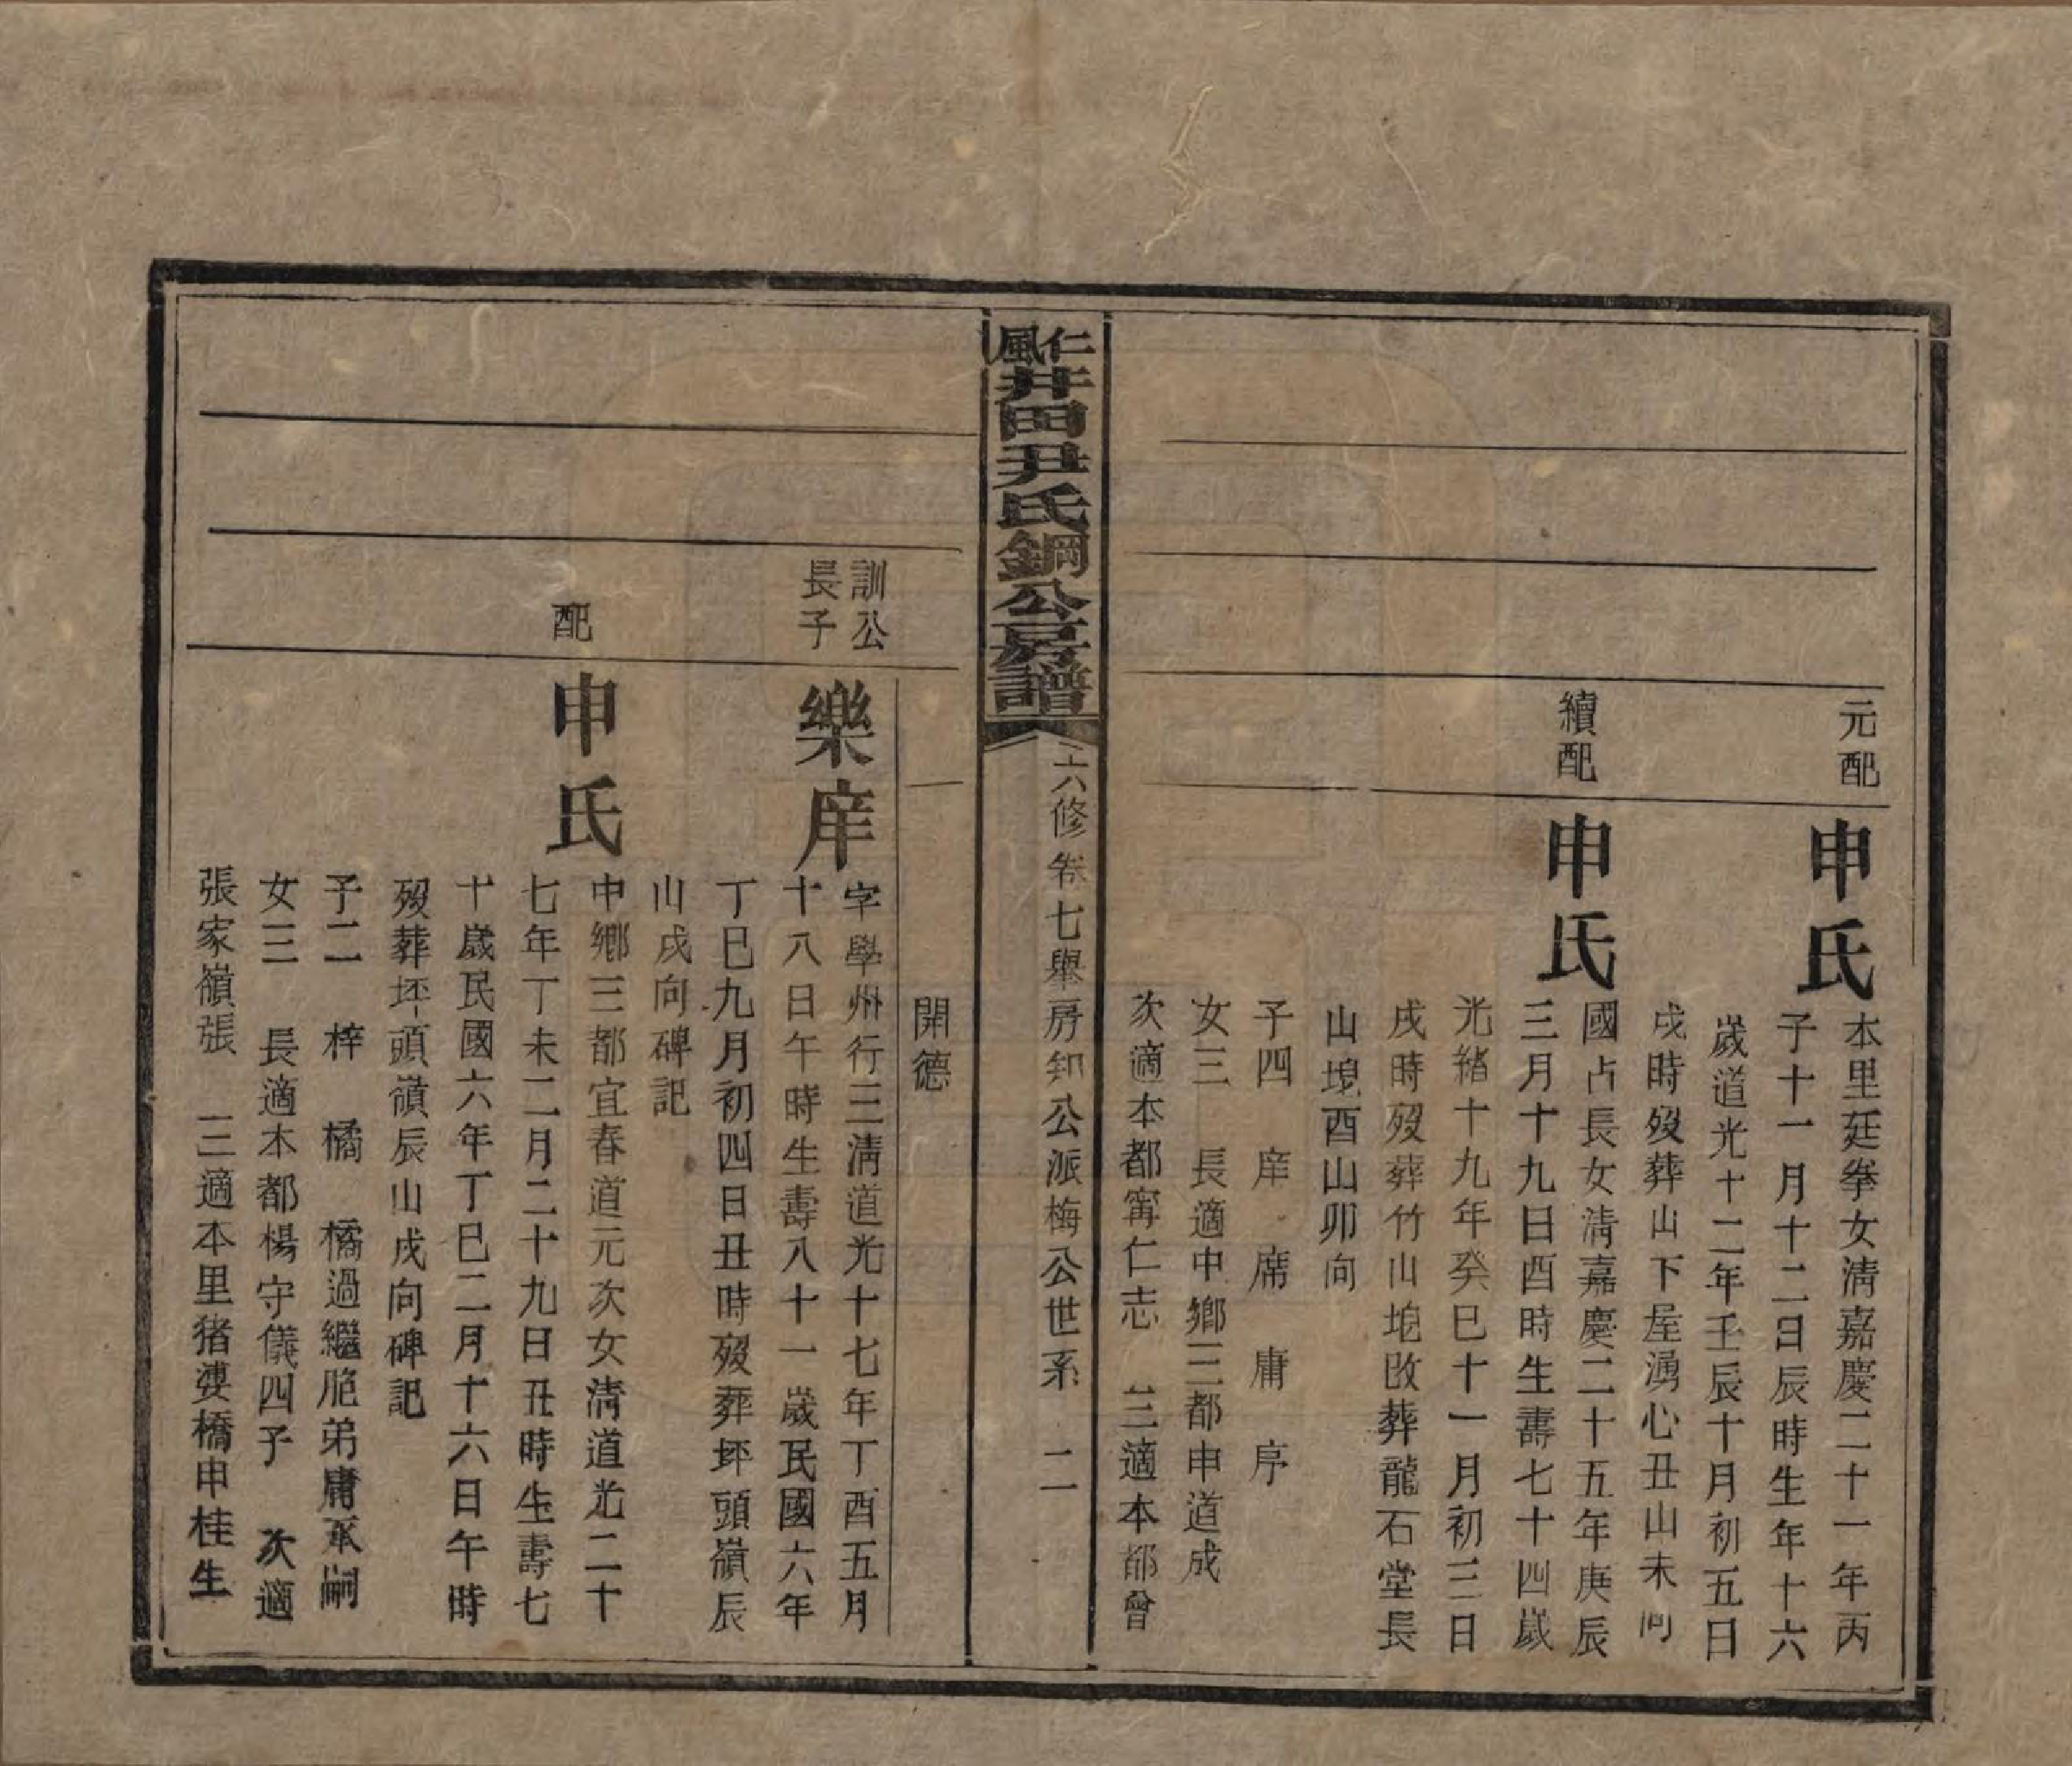 元配
申氏
本里廷拳女清嘉慶二十一年丙
子十一月十二日辰時生年十六
歲道光十二年壬辰十月初五日
戌時歿葬山下屋湧心丑山未向
續配
申氏
國占長女清嘉慶二十五年庚辰
三月十九日酉時生壽七十四歲
光緒十九年癸巳十一月初三日
戌時歿葬竹山堍改葬龍石堂長
山堍酉山卯向
子四 庠 席 庸 序
女三 長適中鄉三都申道成
次適本都甯仁志 三適本都曾
仁風井田尹氏鋼公房譜
六修卷七舉房知公派梅公世系 二
開德
訓公長子
樂庠
字學州行三清道光十七年丁酉五月
十八日午時生壽八十一歲民國六年
丁巳九月初四日丑時歿葬坯頭嶺辰
山戌向碑記
配
申氏
中鄉三都宜春道元次女清道光二十
七年丁未二月二十九日丑時生壽七
十歲民國六年丁巳二月十六日午時
歿葬坯頭嶺辰山戌向碑記
子二 梓 橘 橘過繼胞弟庸承嗣
女三 長適本都楊守儀四子 次適
張家嶺張 三適本里猪婆橋申桂生